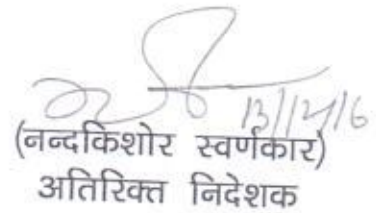 13/12/16
(नन्दकिशोर स्वर्णकार)
अतिरिक्त निदेशक